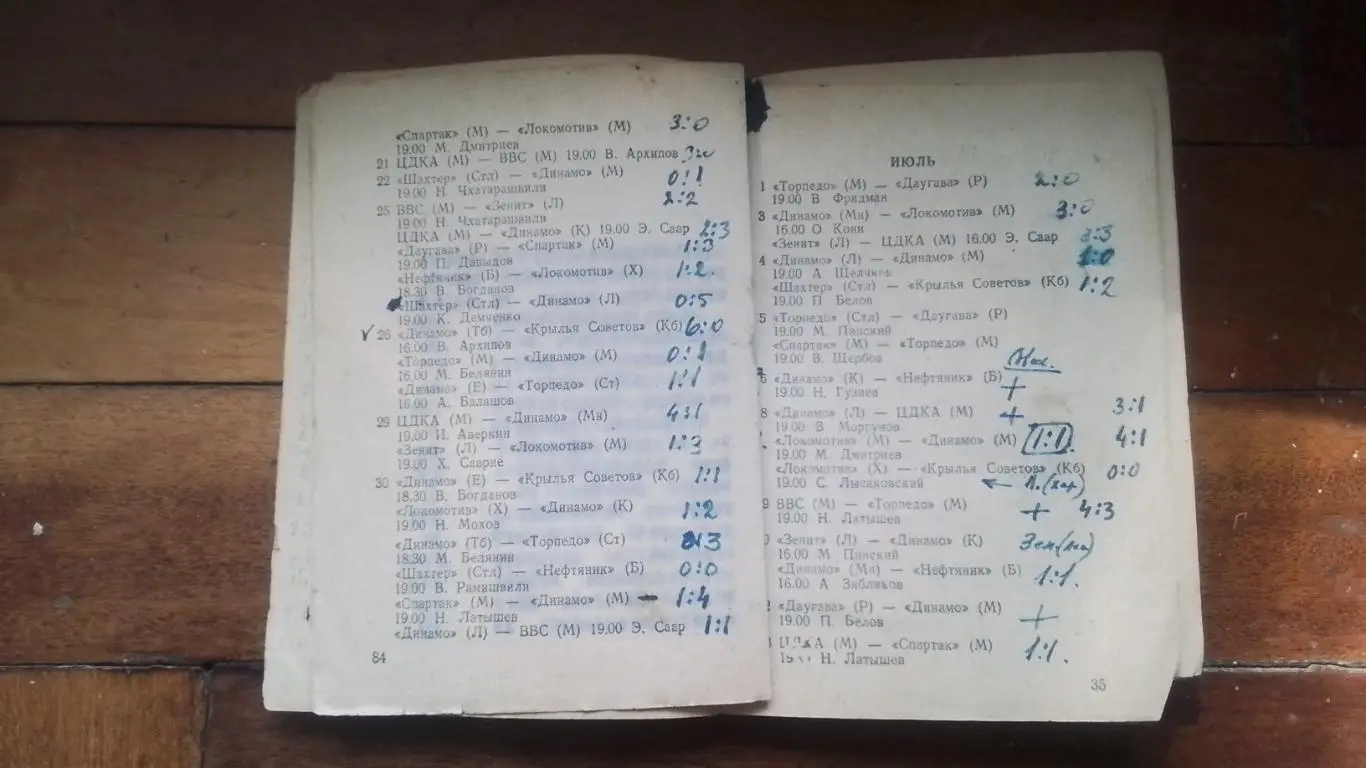 «Спартак» (М) — «Локомотив» (М) 3:0
19.00 М. Дмитриев
21 ЦДКА (М) — ВВС (М) 19.00 В. Архипов
22 «Шахтер» (Стл) — «Динамо» (М) 0:1
19.00 Н. Чхатарашвили
25 ВВС (М) — «Зенит» (Л) 2:2
19.00 Н. Чхатарашвили
ЦДКА (М) — «Динамо» (К) 19.00 Э. Саар 2:3
«Даугава» (Р) — «Спартак» (М) 1:3
19.00 П. Давыдов
«Нефтяник» (Б) — «Локомотив» (Х) 1:2
18.30 В. Богданов
«Шахтер» (Стл) — «Динамо» (Л) 0:5
19.00 К. Демченко
✓ 26 «Динамо» (Тб) — «Крылья Советов» (Кб) 6:0
16.00 В. Архипов
«Торпедо» (М) — «Динамо» (М) 0:1
16.00 М. Белянин
«Динамо» (Е) — «Торпедо» (Ст) 1:1
16.00 А. Балашов
29 ЦДКА (М) — «Динамо» (Мн) 4:1
19.00 И. Аверкин
«Зенит» (Л) — «Локомотив» (М) 1:3
19.00 Х. Саарне
30 «Динамо» (Е) — «Крылья Советов» (Кб) 1:1
18.30 В. Богданов
«Локомотив» (Х) — «Динамо» (К) 1:2
19.00 Н. Мохов
«Динамо» (Тб) — «Торпедо» (Ст)
18.30 М. Белянин
«Шахтер» (Стл) — «Нефтяник» (Б) 0:0
19.00 В. Рамишвили
«Спартак» (М) — «Динамо» (М) — 1:4
19.00 Н. Латышев
«Динамо» (Л) — ВВС (М) 19.00 Э. Саар 1:1
84
ИЮЛЬ
1 «Торпедо» (М) — «Даугава» (Р) 2:0
19.00 В Фридман
3 «Динамо» (Мн) — «Локомотив» (М) 3:0
16.00 О Кони
«Зенит» (Л) — ЦДКА (М) 16.00 Э. Саар 3:3
4 «Динамо» (Л) — «Динамо» (М) 1:0
19.00 А. Щелчков
«Шахтер» (Стл) — «Крылья Советов» (Кб) 1:2
19.00 П Белов
5 «Торпедо» (Стл) — «Даугава» (Р)
19.00 М. Пинский
«Спартак» (М) — «Торпедо» (М)
19.00 В. Щербов
6 «Динамо» (К) — «Нефтяник» (Б) +
19.00 Н. Гузиев
8 «Динамо» (Л) — ЦДКА (М) + 3:1
19.00 В Моргунов
«Локомотив» (М) — «Динамо» (М) 1:1 4:1
19.00 М. Дмитриев
«Локомотив» (Х) — «Крылья Советов» (Кб) 0:0
19.00 С. Лысаковский
9 ВВС (М) — «Торпедо» (М) + 4:3
19.00 Н. Латышев
«Зенит» (Л) — «Динамо» (К)
16.00 М Пинский
«Динамо» (Мн) — «Нефтяник» (Б) 1:1.
16.00 А Зябликов
2 «Даугава» (Р) — «Динамо» (М) +
19.00 П. Белов
ЦДКА (М) — «Спартак» (М) 1:1.
Н. Латышев
35